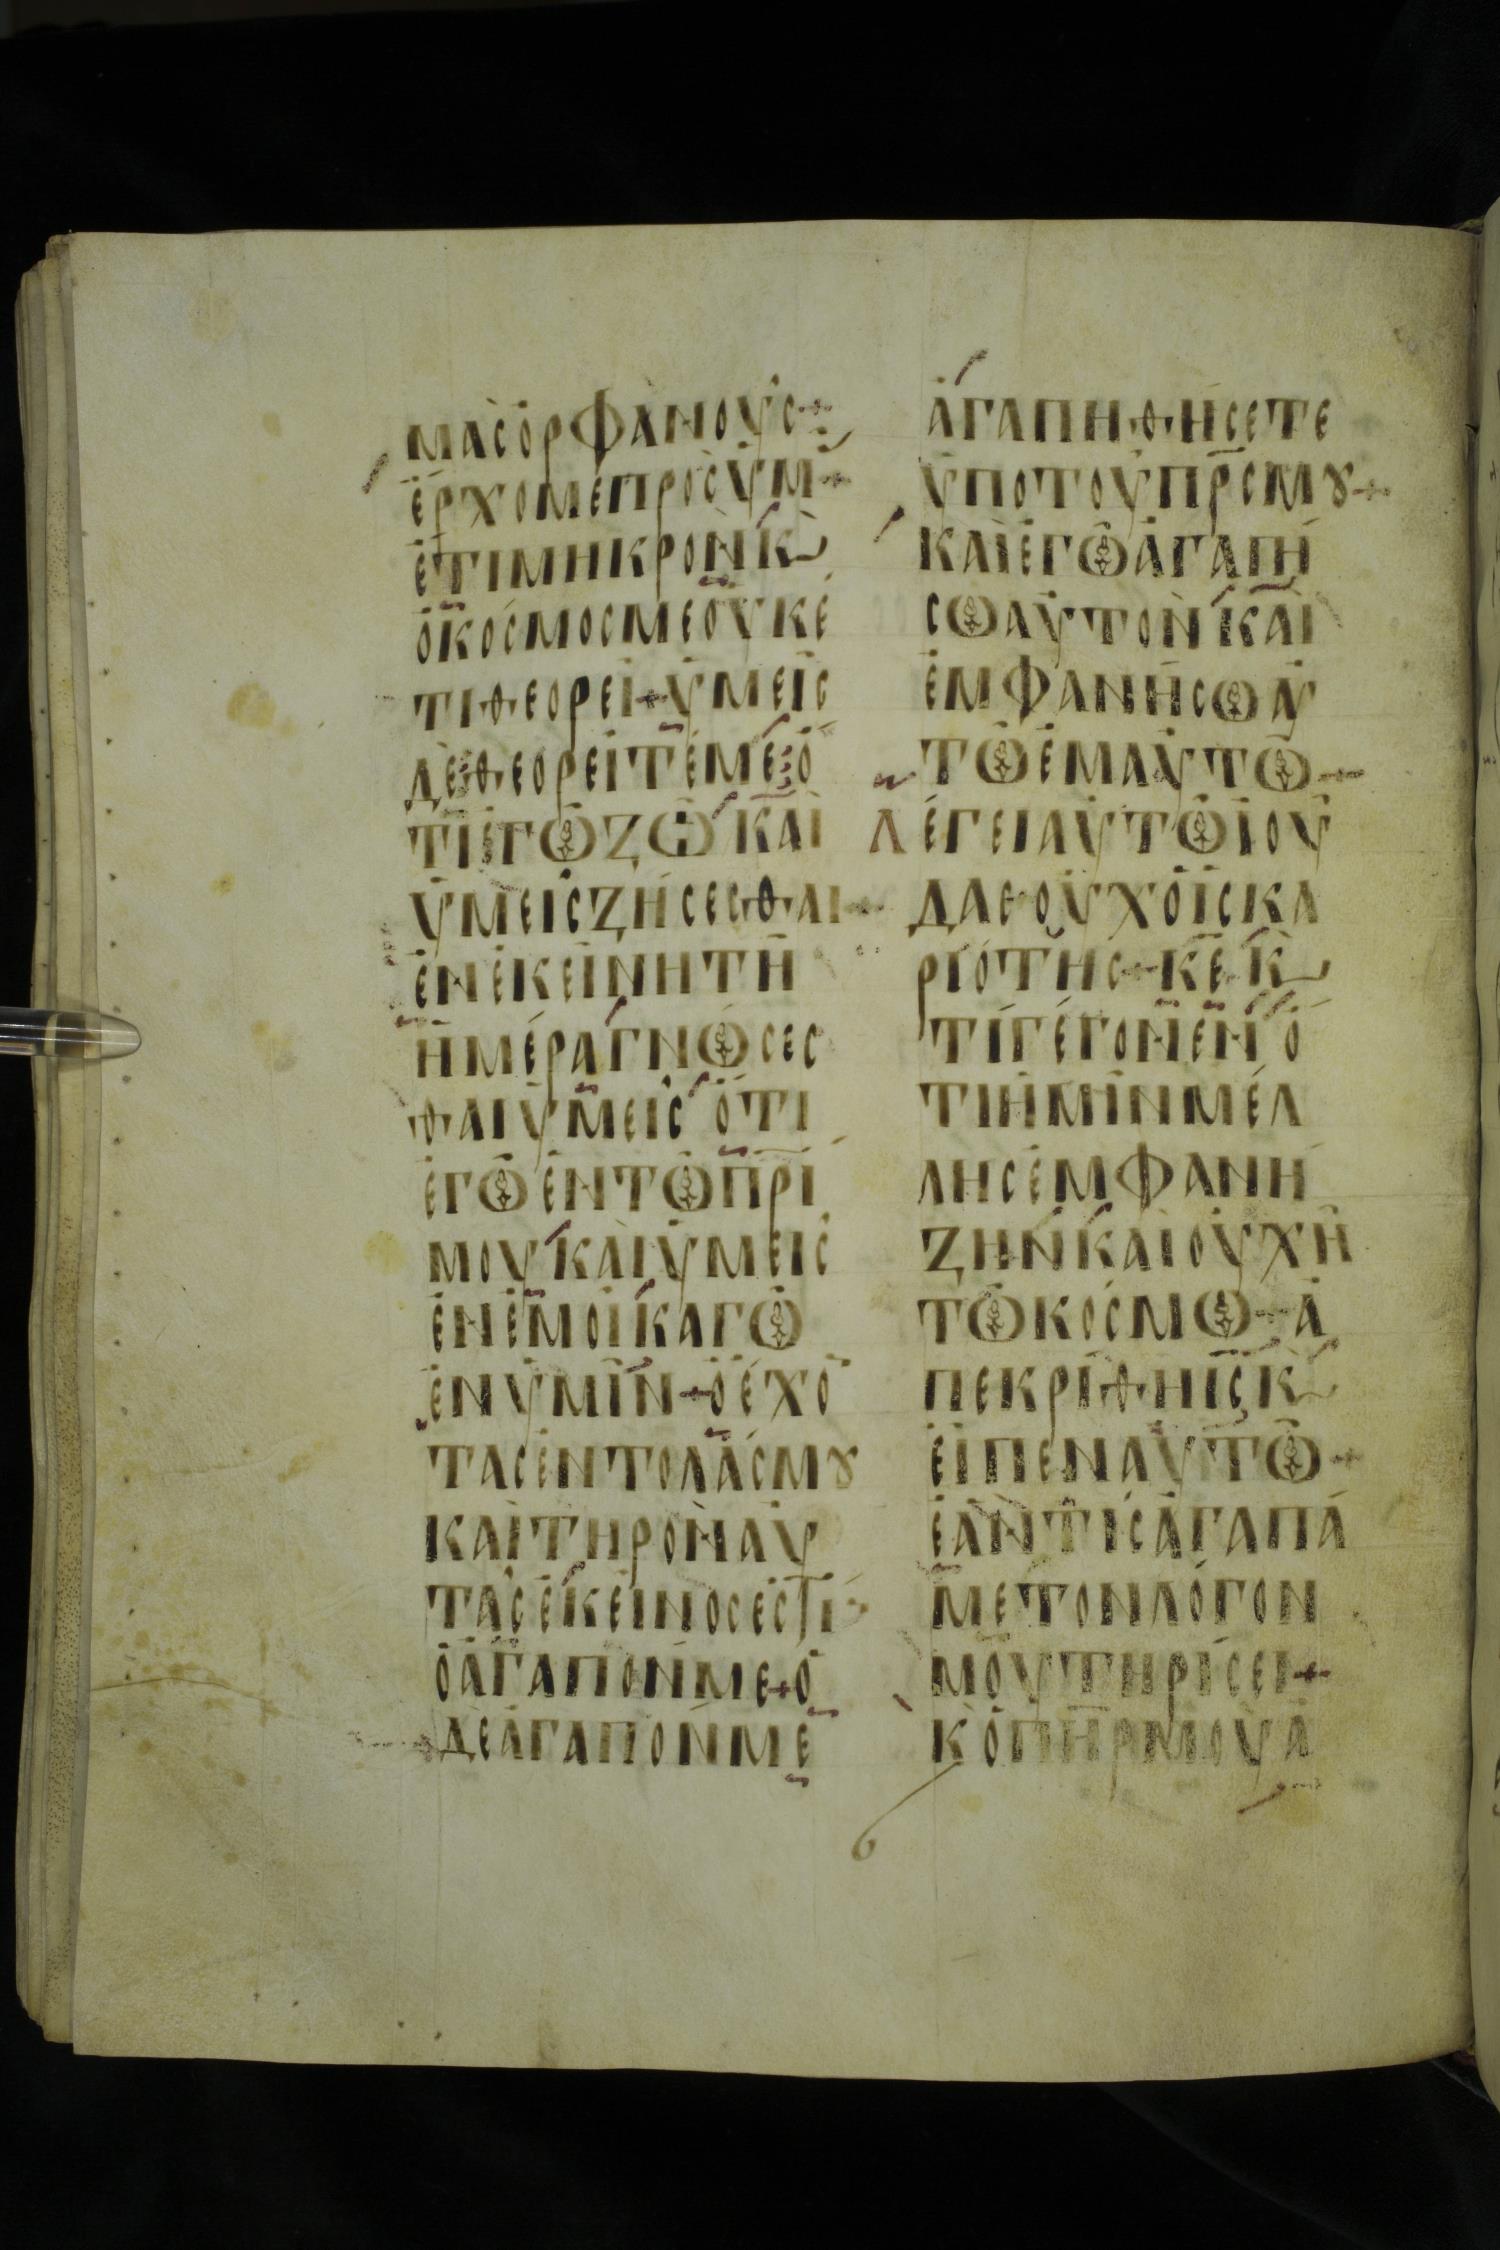 ΜΑΣΟΡΦΑΝΟΥΣ+
ΕΡΧΟΜΕΠΡΟΣΥΜ+
ΕΤΙΜΗΚΡΟΝΚ
ΟΚΟΣΜΟΣΜΕΟΥΚΕ
ΤΙΘΕΟΡΕΙ+ΥΜΕΙΣ
ΔΕΘΕΟΡΕΙΤΕΜΕ:Ο
ΤΙΕΓΩΖΩΚΑΙ
ΥΜΕΙΣΖΗΣΕΣΘΑΙ+
ΕΝΕΚΕΙΝΗΤΗ
ΗΜΕΡΑΓΝΩΣΕΣ
ΘΑΙΥΜΕΙΣΟΤΙ
ΕΓΩΕΝΤΩΠΡΙ
ΜΟΥΚΑΙΥΜΕΙΣ
ΕΝΕΜΟΙΚΑΓΩ
ΕΝΥΜΙΝ+ΟΕΧΟ
ΤΑΣΕΝΤΟΛΑΣΜȣ
ΚΑΙΤΗΡΟΝΑΥ
ΤΑΣΕΚΕΙΝΟΣΕΣΤΙ
ΟΑΓΑΠΟΝΜΕ+Ο
ΔΕΑΓΑΠΟΝΜΕ
ΑΓΑΠΗΘΗΣΕΤΕ
ΥΠΟΤΟΥΠΡΣΜȣ+
ΚΑΙΕΓΩΑΓΑΠΗ
ΣΩΑΥΤΟΝΚΑΙ
ΕΜΦΑΝΗΣΩΑΥ
ΤΩΕΜΑΥΤΩ+
ΛΕΓΕΙΑΥΤΩΙΟΥ
ΔΑΣΟΥΧΟΙΣΚΑ
ΡΙΟΤΗΣ+ΚΕΚ
ΤΙΓΕΓΟΝΕΝΟ
ΤΙΗΜΙΝΜΕΛ
ΛΗΣΕΜΦΑΝΗ
ΖΗΝΚΑΙΟΥΧΗ
ΤΩΚΟΣΜΩ+Α
ΠΕΚΡΙΘΗΙΣΚ
ΕΙΠΕΝΑΥΤΩ+
ΕΑΝΤΙΣΑΓΑΠΑ
ΜΕΤΟΝΛΟΓΟΝ
ΜΟΥΤΗΡΙΣΕΙ+
ΚΟΠΗΡΜΟΥΑ